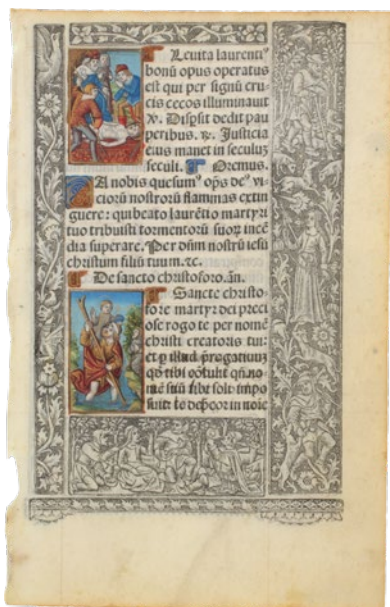 Leuita laurentiꝰ
bonū opus operatus
est qui per signū cru
cis cecos illuminauit
℣. Dispsit dedit pau
peribus. ℟. Justicia
eius manet in seculuz
seculi. Oremus.
A nobis quesumꝰ op̄s deꝰ vi
ciorū nostrorū flammas extin
guere: qui beato laurētio martyri
tuo tribuisti tormentorū suoꝝ incē
dia superare. Per dūm nostrū iesū
christum filiū tuum. ⁊c.
De sancto christoforo. añ.
Sancte christo
fore martyr dei preci
ose rogo te per nomē
christi creatoris tui:
et illud
tibi qñ no
mē suū tibi soli impo
suit: in noīe